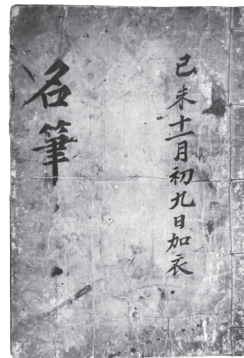 己未十一月初九日加衣
名筆